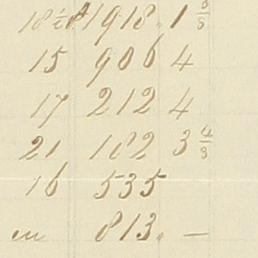 18½ 1918 1 5/8
15 906 4
17 212 4
21 182 3 4/8
16 535
m 813 —